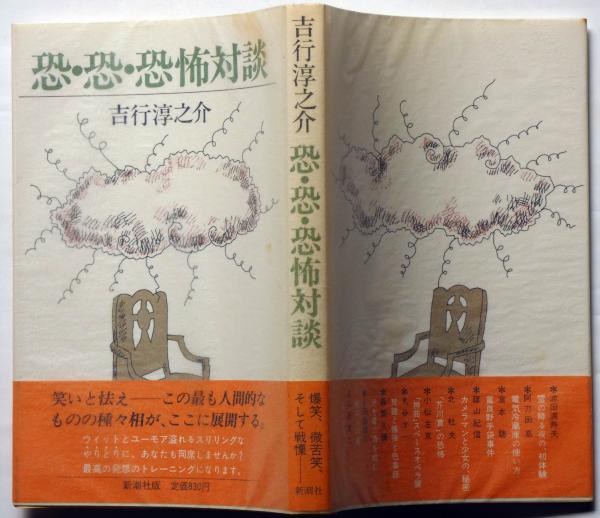 恐・恐・恐怖対談
吉行淳之介
笑いと怯え――この最も人間的な
ものの種々相が、ここに展開する。
ウィットとユーモア溢れるスリリングな
やりとりに、あなたも同席しませんか?
最高の発想のトレーニングになります。
新潮社版 定価830円
吉行淳之介 恐・恐・恐怖対談
爆笑、微苦笑、
そして戦慄――
新潮社
雪の降る夜の初体験
*阿刀田高
電気冷蔵庫の使い方
*倉本聰
富良野手袋事件
*篠山紀信
カメラマンと少女の、秘密
*北 杜夫
「芥川賞」の恐怖
*小松左京